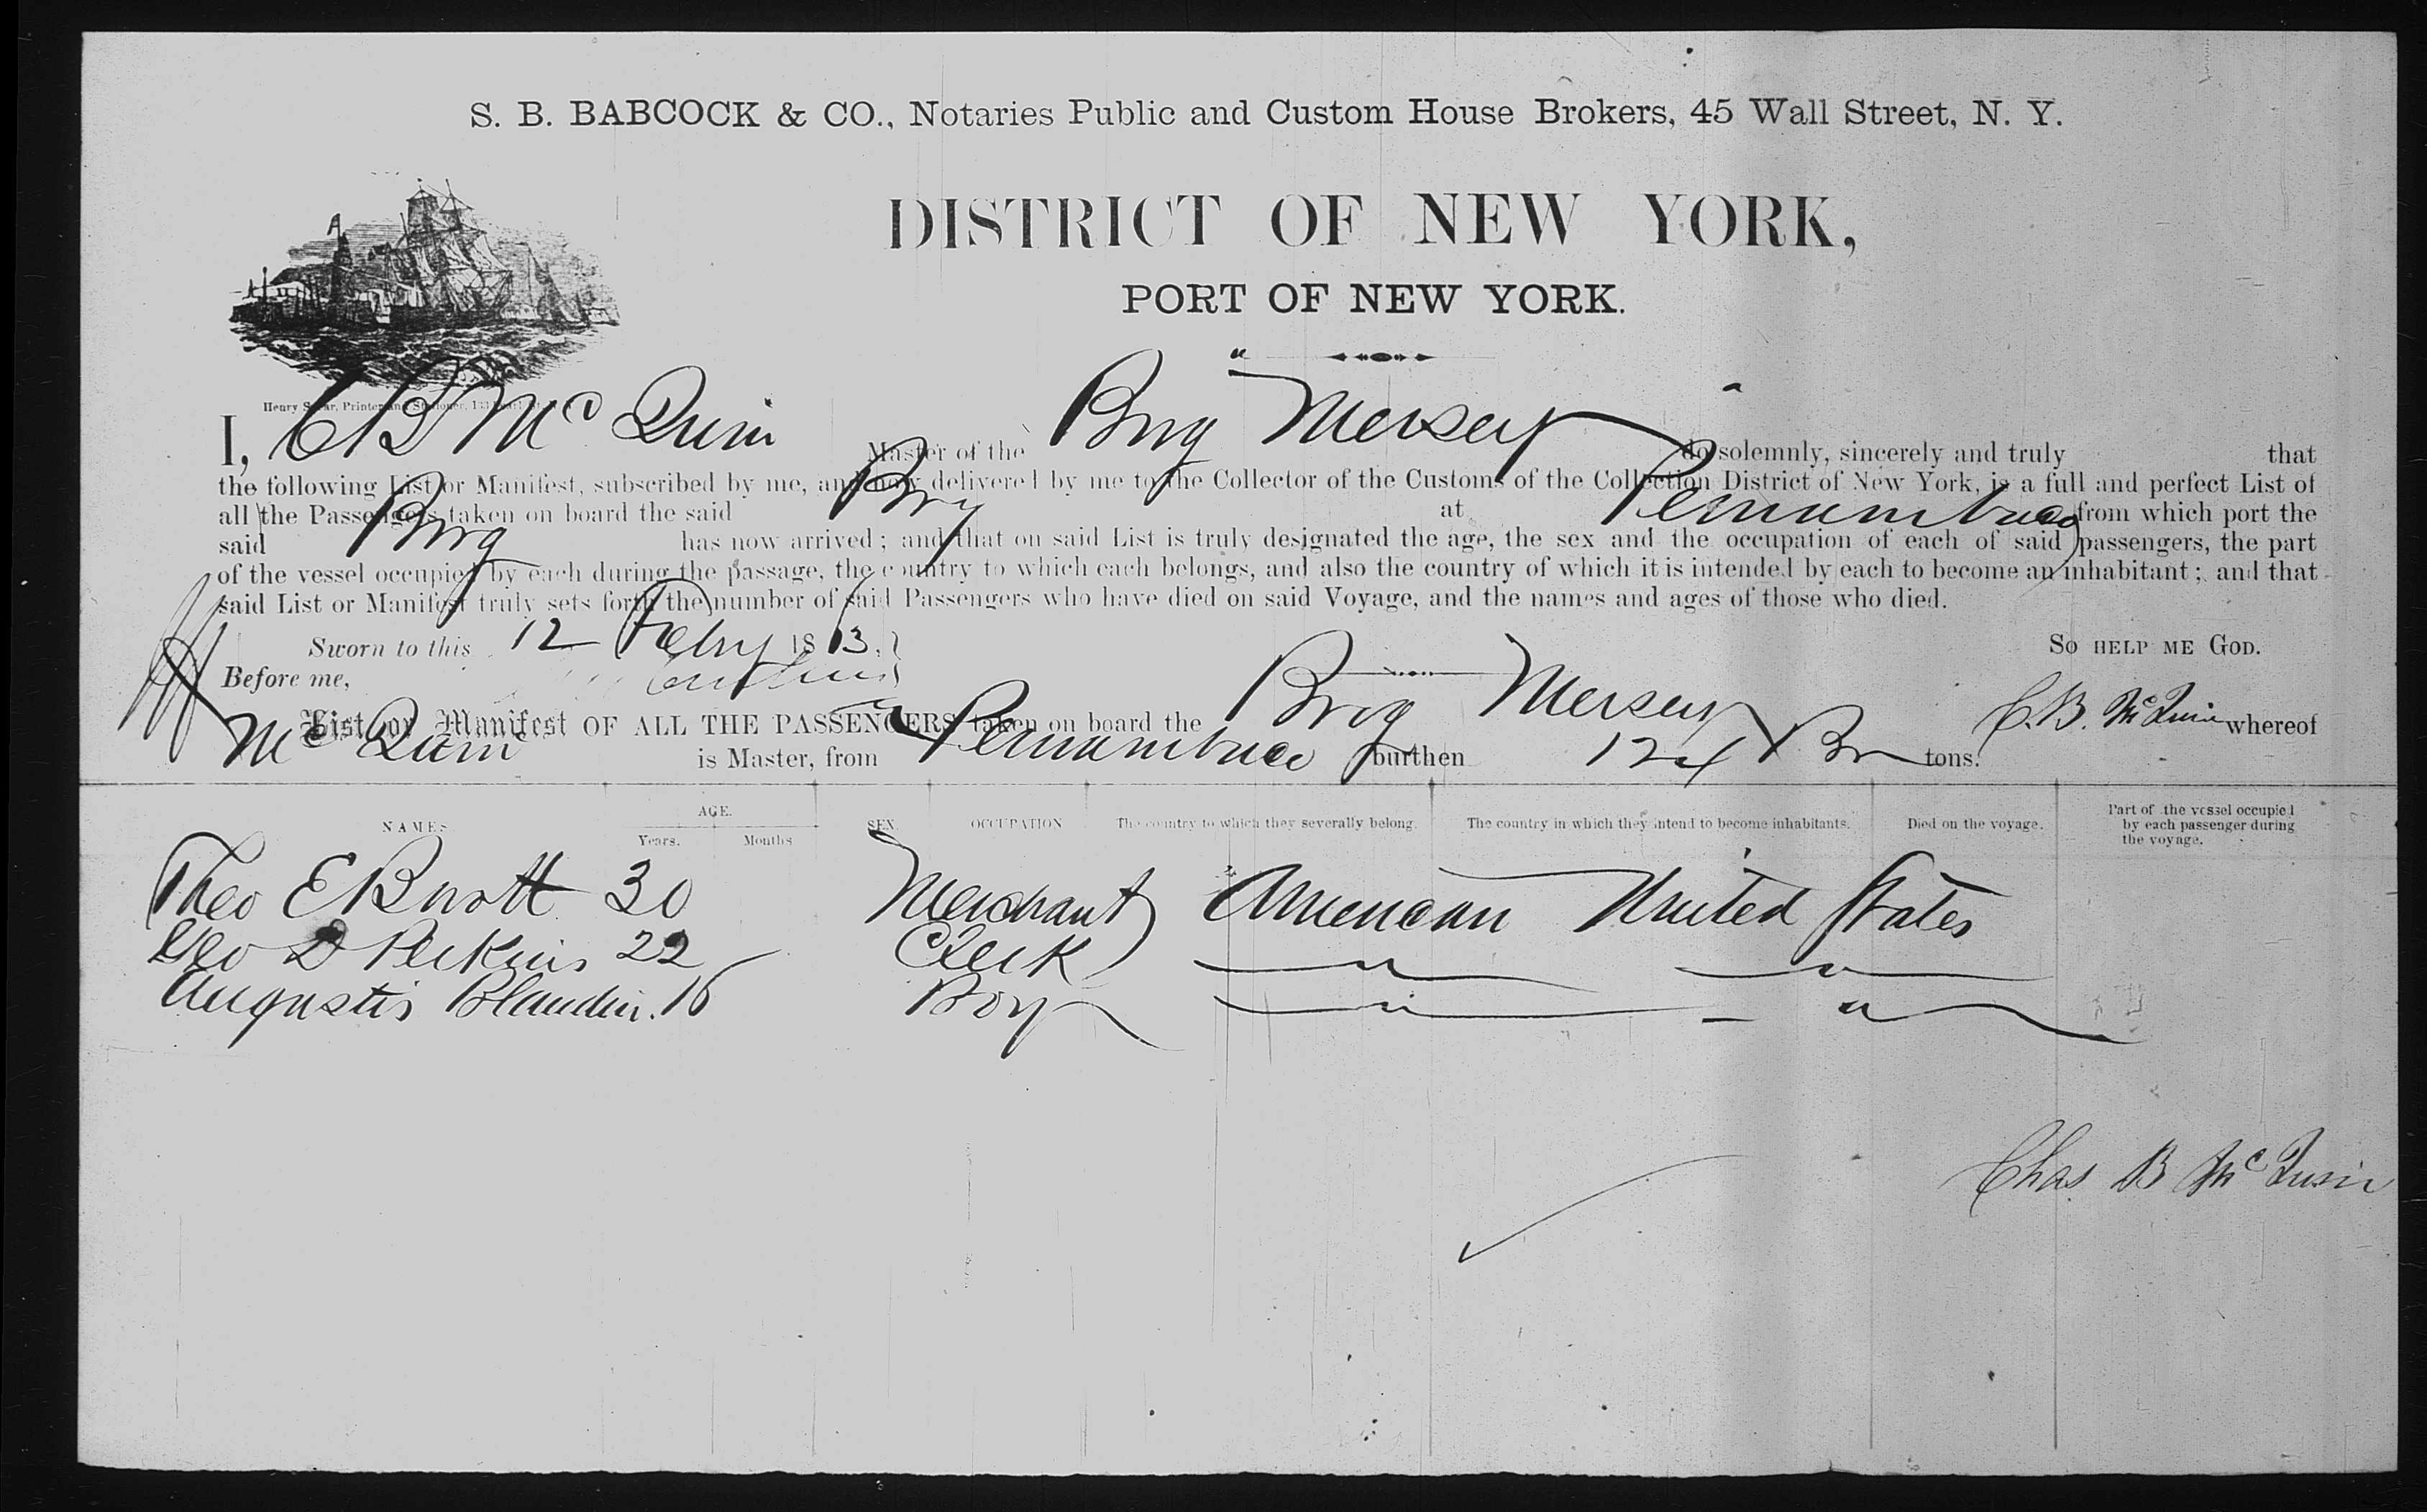 S. B. BABCOCK & CO., Notaries Public and Custom House Brokers, 45 Wall Street, N. Y.
DISTRICT OF NEW YORK,
PORT OF NEW YORK.
Henry Printer and Stationer,
I, C B McQuin Master of the Brig Mersey do solemnly, sincerely and truly that
the following List or Manifest, subscribed by me, and now delivered by me to the Collector of the Customs of the Collection District of New York, is a full and perfect List of
all the Passengers taken on board the said Brig at Pernambuco from which port the
said Brig has now arrived; and that on said List is truly designated the age, the sex and the occupation of each of said passengers, the part
of the vessel occupied by each during the passage, the country to which each belongs, and also the country of which it is intended by each to become an inhabitant; and that
said List or Manifest truly sets forth the number of said Passengers who have died on said Voyage, and the names and ages of those who died.
Sworn to this 12 Feby 18 3. SO HELP ME GOD.
Before me, C. B. McQuin
List or Manifest OF ALL THE PASSENGERS taken on board the Brig Mersey whereof
McQuin is Master, from Pernambuco burthen Br tons.
NAMES AGE. Years. Months SEX OCCUPATION The country to which they severally belong. The country in which they intend to become inhabitants. Died on the voyage. Part of the vessel occupied by each passenger during the voyage.
Theo E 30 Merchant American United States
Geo D Perkins 22 Clerk " "
Augustis Blandin. 16 Boy " "
Chas B McQuin